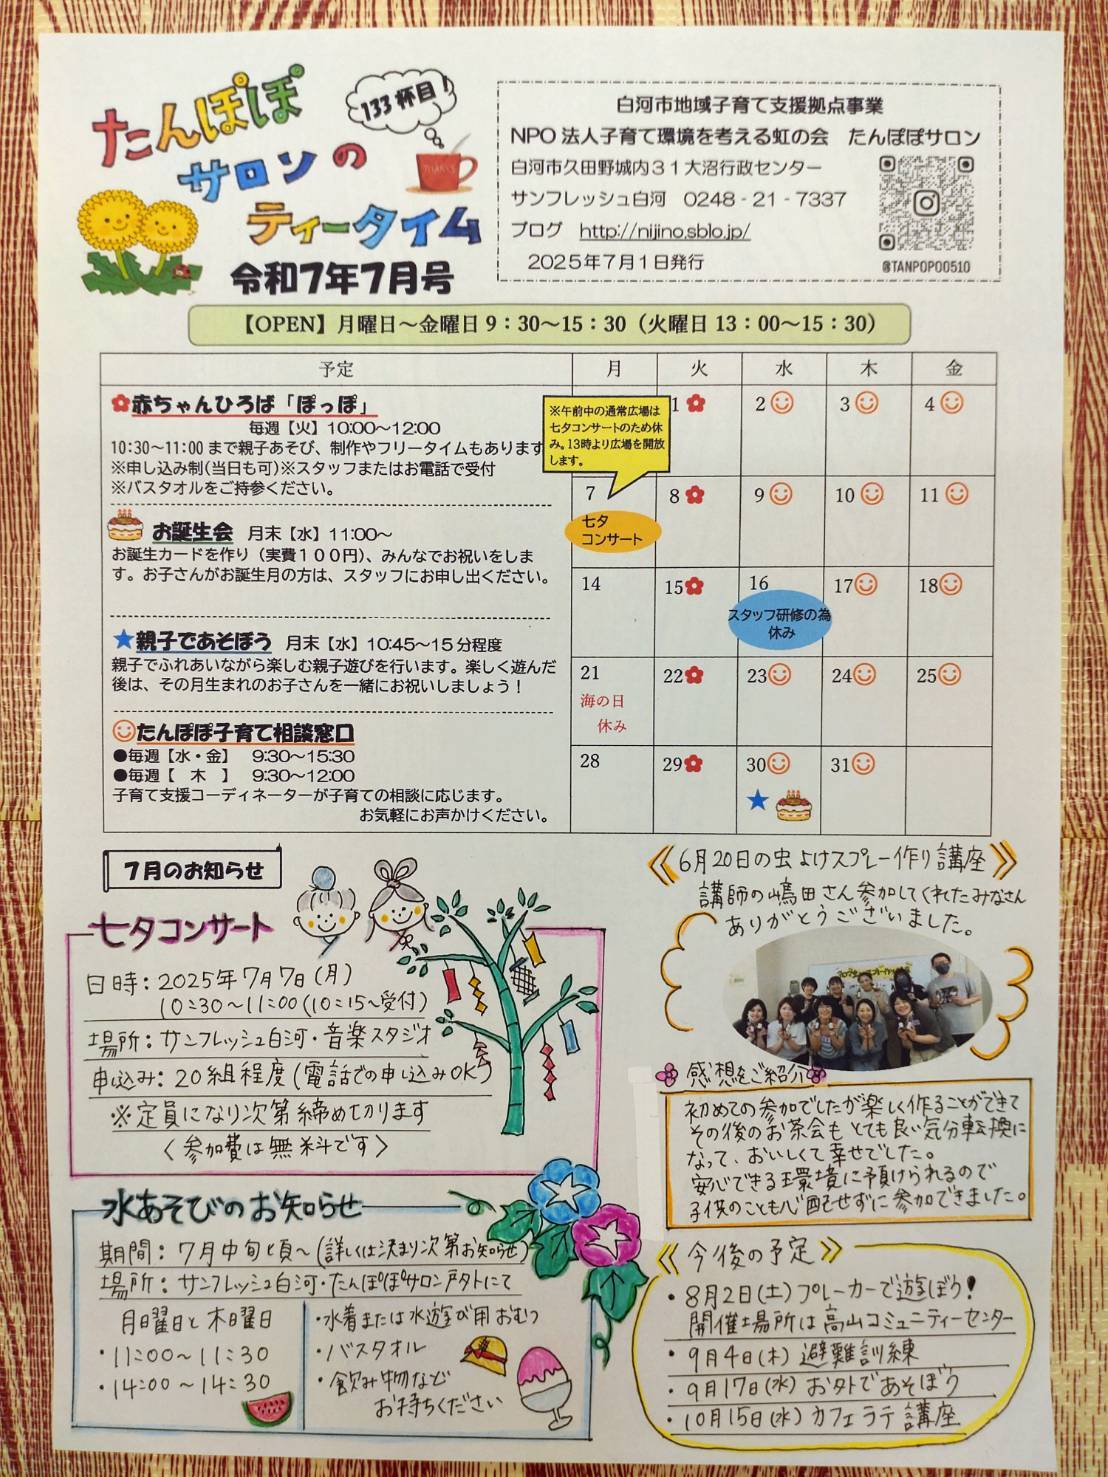 たんぽぽ
サロンの
ティータイム
133杯目!
THANKS
令和7年7月号
白河市地域子育て支援拠点事業
NPO法人子育て環境を考える虹の会 たんぽぽサロン
白河市久田野城内31大沼行政センター
サンフレッシュ白河 0248-21-7337
ブログ http://nijino.sblo.jp/
2025年7月1日発行
@TANPOPO0510
【OPEN】月曜日~金曜日9:30~15:30(火曜日13:00~15:30)
予定 月 火 水 木 金
赤ちゃんひろば「ぽっぽ」
毎週【火】10:00~12:00
10:30~11:00まで親子あそび、制作やフリータイムもあります
※申し込み制(当日も可)※スタッフまたはお電話で受付
※バスタオルをご持参ください。
お誕生会 月末【水】11:00~
お誕生カードを作り(実費100円)、みんなでお祝いをしま
す。お子さんがお誕生月の方は、スタッフにお申し出ください。
★親子であそぼう 月末【水】10:45~15分程度
親子でふれあいながら楽しむ親子遊びを行います。楽しく遊んだ
後は、その月生まれのお子さんを一緒にお祝いしましょう!
たんぽぽ子育て相談窓口
●毎週【水・金】 9:30~15:30
●毎週【 木 】 9:30~12:00
子育て支援コーディネーターが子育ての相談に応じます。
お気軽にお声かけください。
※午前中の通常広場は
七夕コンサートのため休
み。13時より広場を開放
します。
1 2 3 4
7 8 9 10 11
七夕
コンサート
14 15 16 17 18
スタッフ研修の為
休み
21 22 23 24 25
海の日
休み
28 29 30 31
★
7月のお知らせ
七夕コンサート
日時:2025年7月7日(月)
10:30~11:00(10:15~受付)
場所:サンフレッシュ白河・音楽スタジオ
申込み:20組程度(電話での申し込みOK)
※定員になり次第締め切ります
〈参加費は無料です〉
水あそびのお知らせ
期間:7月中旬頃~(詳しくは決まり次第お知らせ)
場所:サンフレッシュ白河・たんぽぽサロン戸外にて
月曜日と木曜日
・11:00~11:30
・14:00~14:30
・水着または水遊び用おむつ
・バスタオル
・飲み物など
お持ちください
《6月20日の虫よけスプレー作り講座》
講師の嶋田さん参加してくれたみなさん
ありがとうございました。
感想をご紹介
初めての参加でしたが楽しく作ることができて
その後のお茶会もとても良い気分転換に
なって、おいしくて幸せでした。
安心できる環境に預けられるので
子供のことも心配せずに参加できました。
《今後の予定》
・8月2日(土)プレーカーで遊ぼう!
開催場所は高山コミュニティーセンター
・9月4日(木)避難訓練
・9月17日(水)お外であそぼう
・10月15日(水)カフェラテ講座